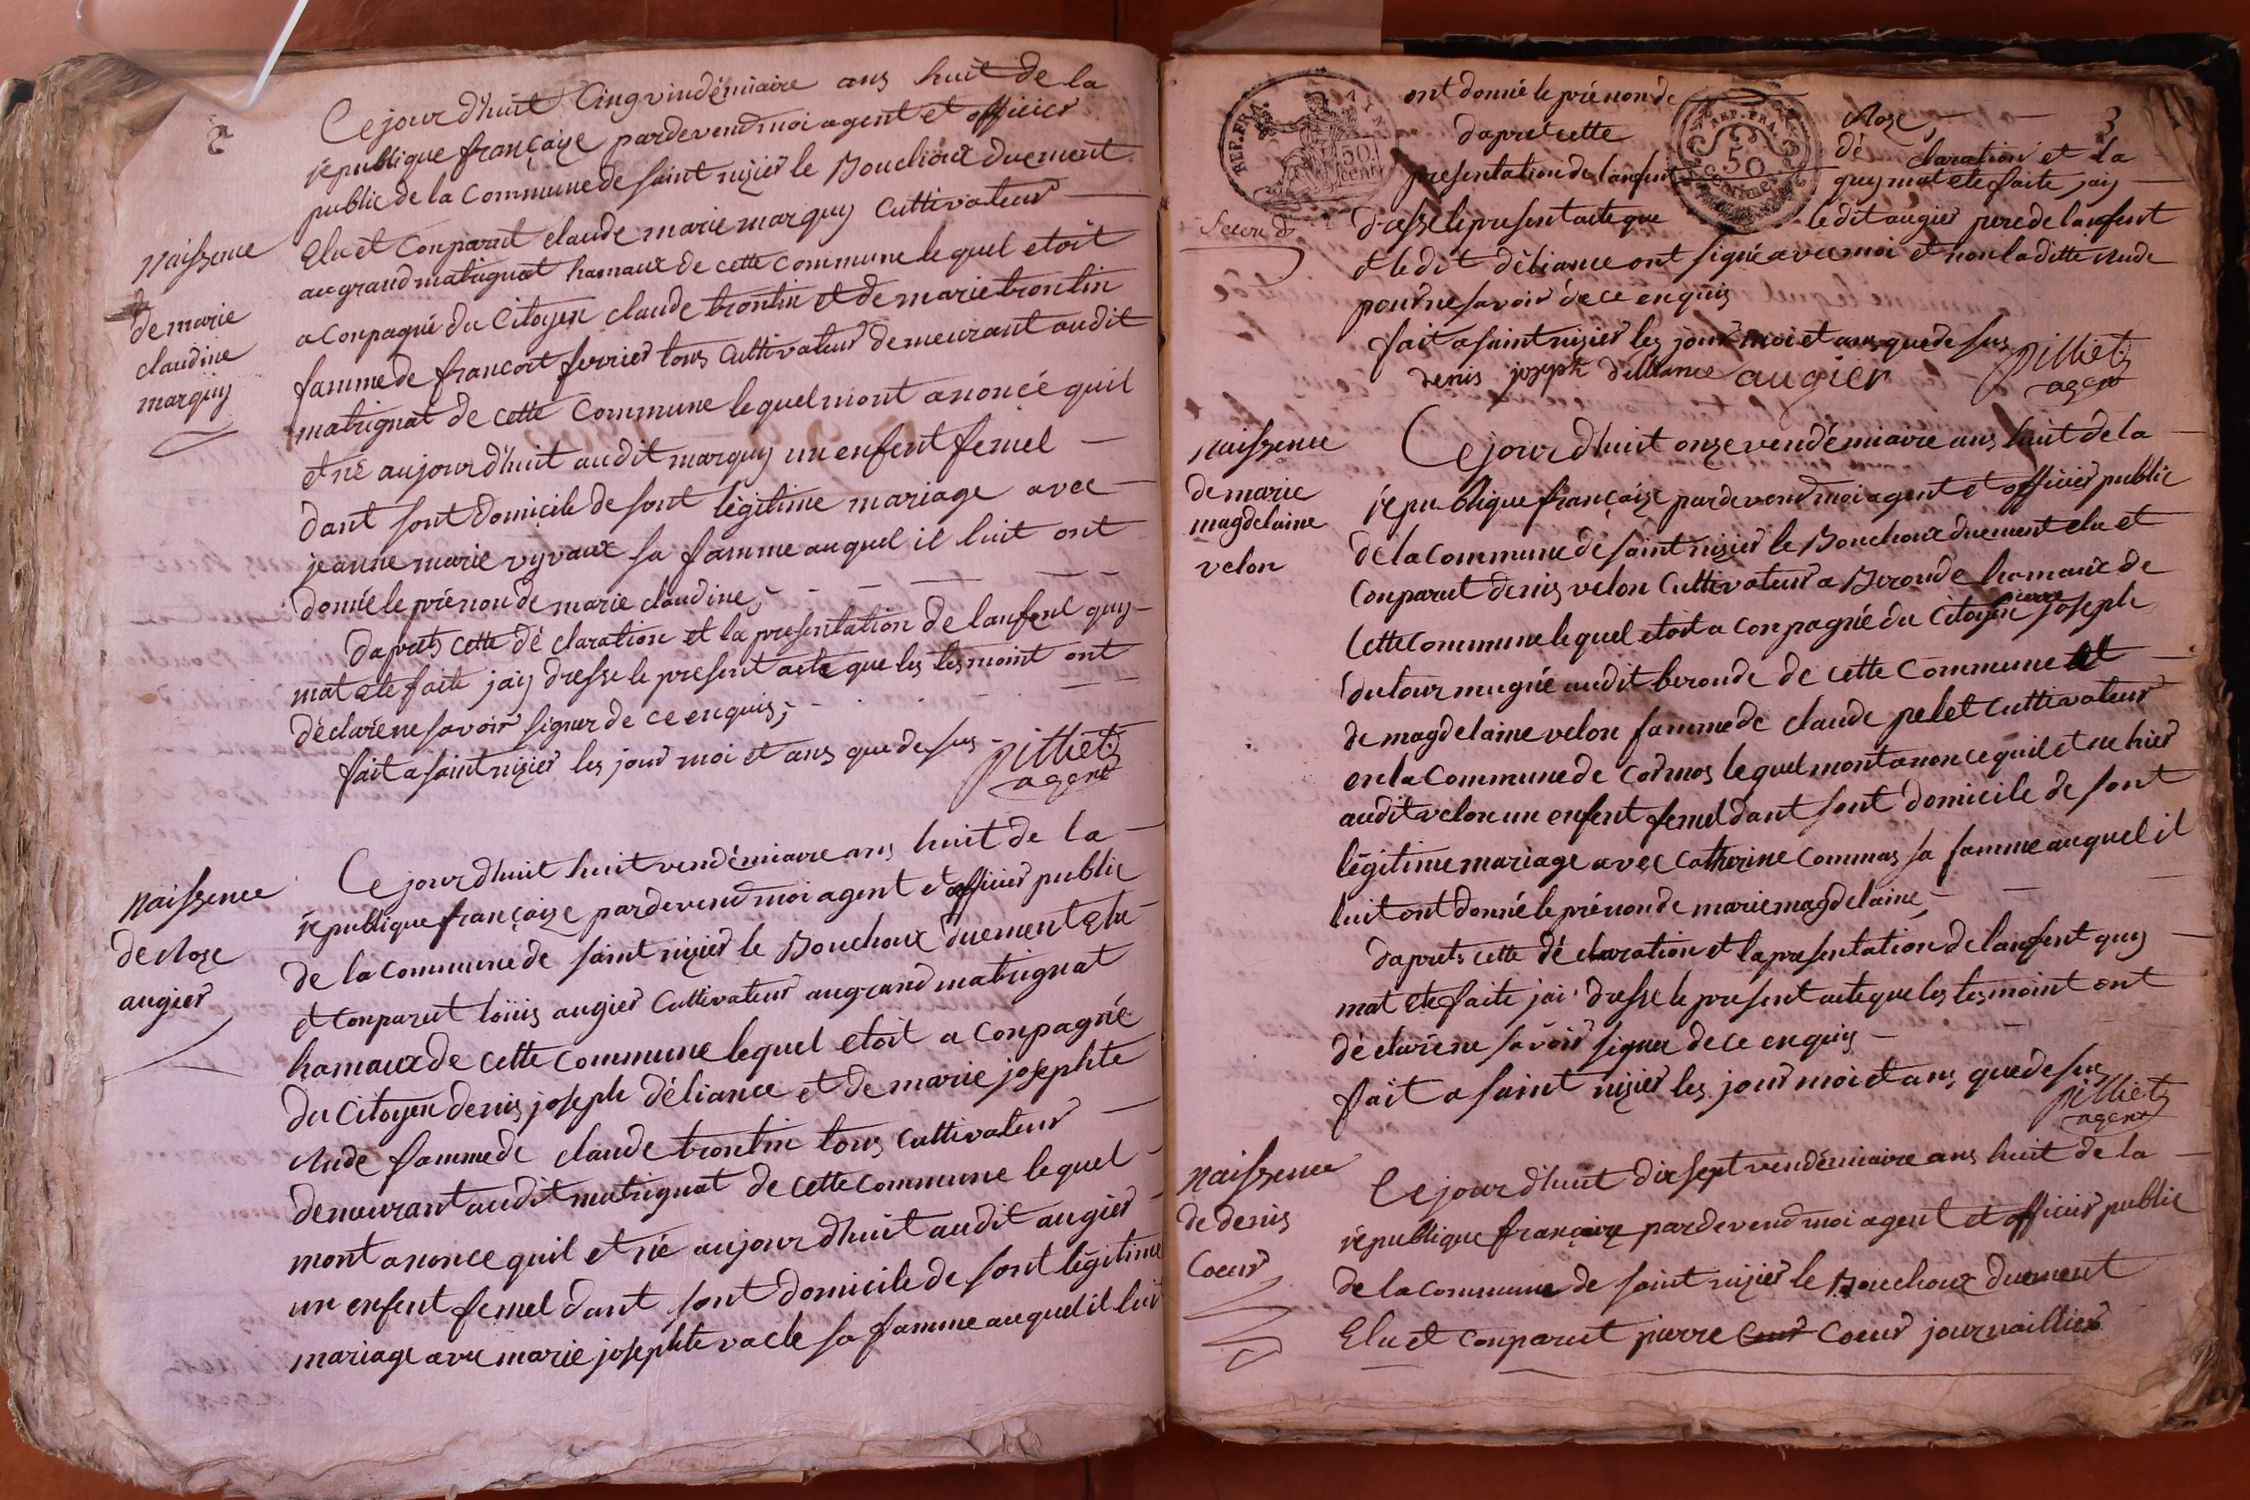 2
Ce jour d'huit Cinq vindémiaire ans huit de la
republique françaize pardevend moi agent et officier
public de la Commune de saint nizier le Bouchoux duement
Naissence
Elu et Conparut claude marie marquy Cultivateur
au grand matrignat hamaux de cette Commune lequel etoit
de marie
claudine
marquy
aconpagné du Citoyen claude trontin et de marie trontin
famme de francoit ferrier tous Cultivateur demeurant audit
matrignat de cette Commune lequel mont anoncé quil
et né aujourdhuit audit marquy un enfent femel
dant sont domicile de sont légitime mariage avec
jeanne marie vyvaux sa famme auquel il luit ont
donné le prénon de marie claudine,
daprets cette dé claration et la presentation de lanfent quy
mat ete faite jaiy dresse le present acte que les tesmoint ont
déclaré ne savoir signer de ce enquis,
fait a saint nizier les jour moi et ans que de sus
pilliet
agent
Naissence
de Roze
augier
Ce jour d'huit huit vendémiaire ans huit de la
république françaize pardevend moi agent et officier public
de la commune de saint nizier le Bouchoux duement Elu
et Conparut loüis augier Cultivateur au grand matrignat
hamaux de cette commune lequel etoit a conpagné
du Citoyen denis joseph déliance et de marie josephte
Rude famme de claude trontin tous Cultivateur
demeurant audit matrignat de cette commune lequel
mont anonce quil et né aujourdhuit audit augier
un enfent femel dant sont domicile de sont légitime
mariage avec marie josephte vacle sa famme auquel il luit
3
ont donné le prénon de Roze,
REP. FRA.
50 cent
REP. FRA.
50
centimes
daprets cette dé claration et la
presentation de lanfent quy mat ete faite jaiy
dresse le present acte que le dit augier pere de lanfent
et le dit déliance ont signé avec moi et non la ditte Rude
pour ne savoir de ce enquis
fait a saint nizier les jour moi et ans que de sus
denis joseph deliance augier pilliet
agent
Naissence
de marie
magdelaine
velon
Ce jour d'huit onze vendémiaire ans huit de la
république françaize pardevend moi agent et officier public
de la commune de saint nizier le Bouchoux duement elu et
Conparut denis velon Cultivateur a Beronde hamaux de
Cette Commune lequel etoit a conpagné du Citoyen pierre joseph
dutour mugné audit beronde de cette Commune et
de magdelaine velon famme de claude pelet Cultivateur
en la Commune de Cormos lequel mont anonce quil et né hier
audit velon un enfent femel dant sont domicile de sont
légitime mariage avec Catherine Commas sa famme auquel il
luit ont donné le prénon de marie magdelaine,
daprets cette dé claration et la presentation de lanfent quy
mat ete faite jai dresse le present acte que les tesmoint ont
déclaré ne savoir signer de ce enquis
fait a saint nizier les jour moi et ans que de sus
pilliet
agent
Naissence
de denis
Coeur
Ce jour d'huit dix sept vendémiaire ans huit de la
république françaize pardevend moi agent et officier public
de la commune de saint nizier le Bouchoux duement
Elu et Conparut pierre Coeur journaillier